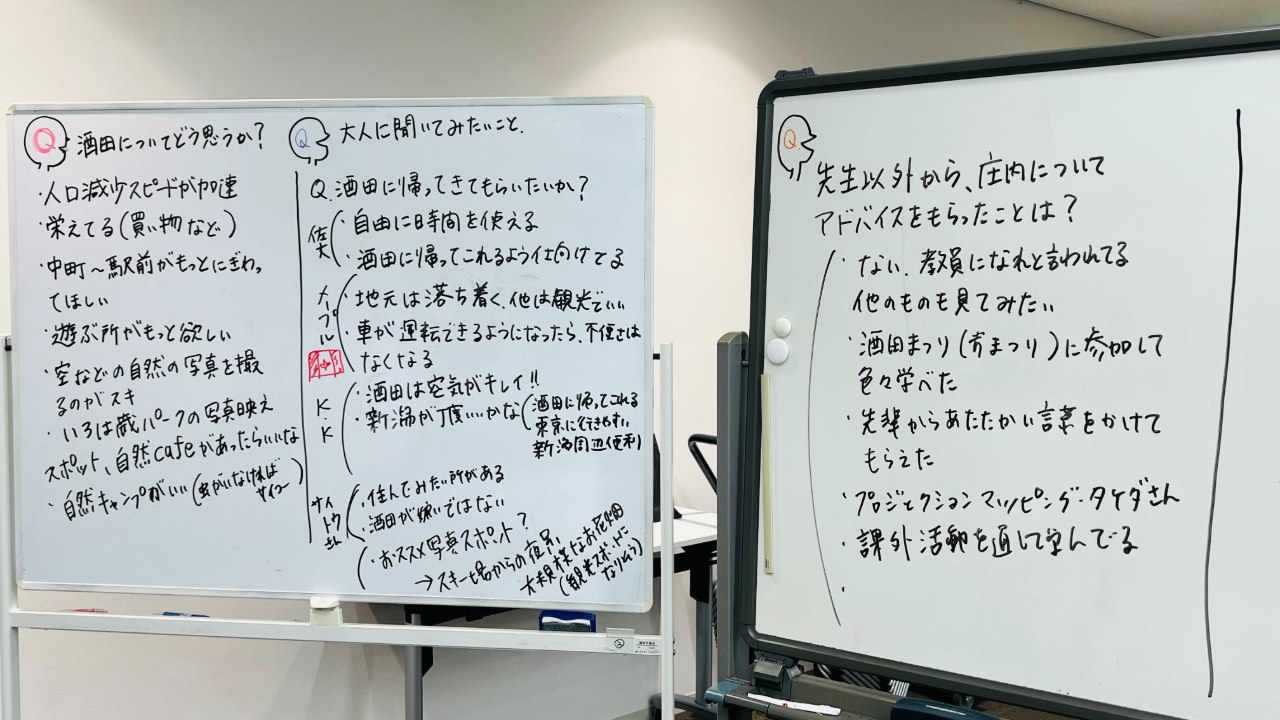 Q 酒田についてどう思うか?
・人口減少スピードが加速
・栄えてる(買い物など)
・中町~駅前がもっとにぎわっ
てほしい
・遊ぶ所がもっと欲しい
・空などの自然の写真を撮
るのがスキ
・いろは蔵パークの写真映え
スポット、自然cafeがあったらいいな
・自然キャンプがいい(虫がいなければ
サイコー)
Q 大人に聞いてみたいこと.
Q.酒田に帰ってきてもらいたいか?
・自由に時間を使える
・酒田に帰ってこれるよう仕向けてる
メープル
・地元は落ち着く、他は観光でいい
・車が運転できるようになったら、不便さは
なくなる
KK
・酒田は空気がキレイ!!
・新潟が丁度いいかな(酒田に帰ってこれる
東京に行きやすい
新潟周辺便利)
サイトウさん
・住んでみたい所がある
・酒田が嫌いではない
・おススメ写真スポット?
→スキー場からの夜景、
大規模なお花畑
(観光スポットに
なりそう)
Q 先生以外から、庄内について
アドバイスをもらったことは?
・ない、教員になれと言われてる
他のものも見てみたい
・酒田まつり(おまつり)に参加して
色々学べた
・先輩からあたたかい言葉をかけて
もらえた
・プロジェクションマッピング・タケダさん
・課外活動を通して学んでる